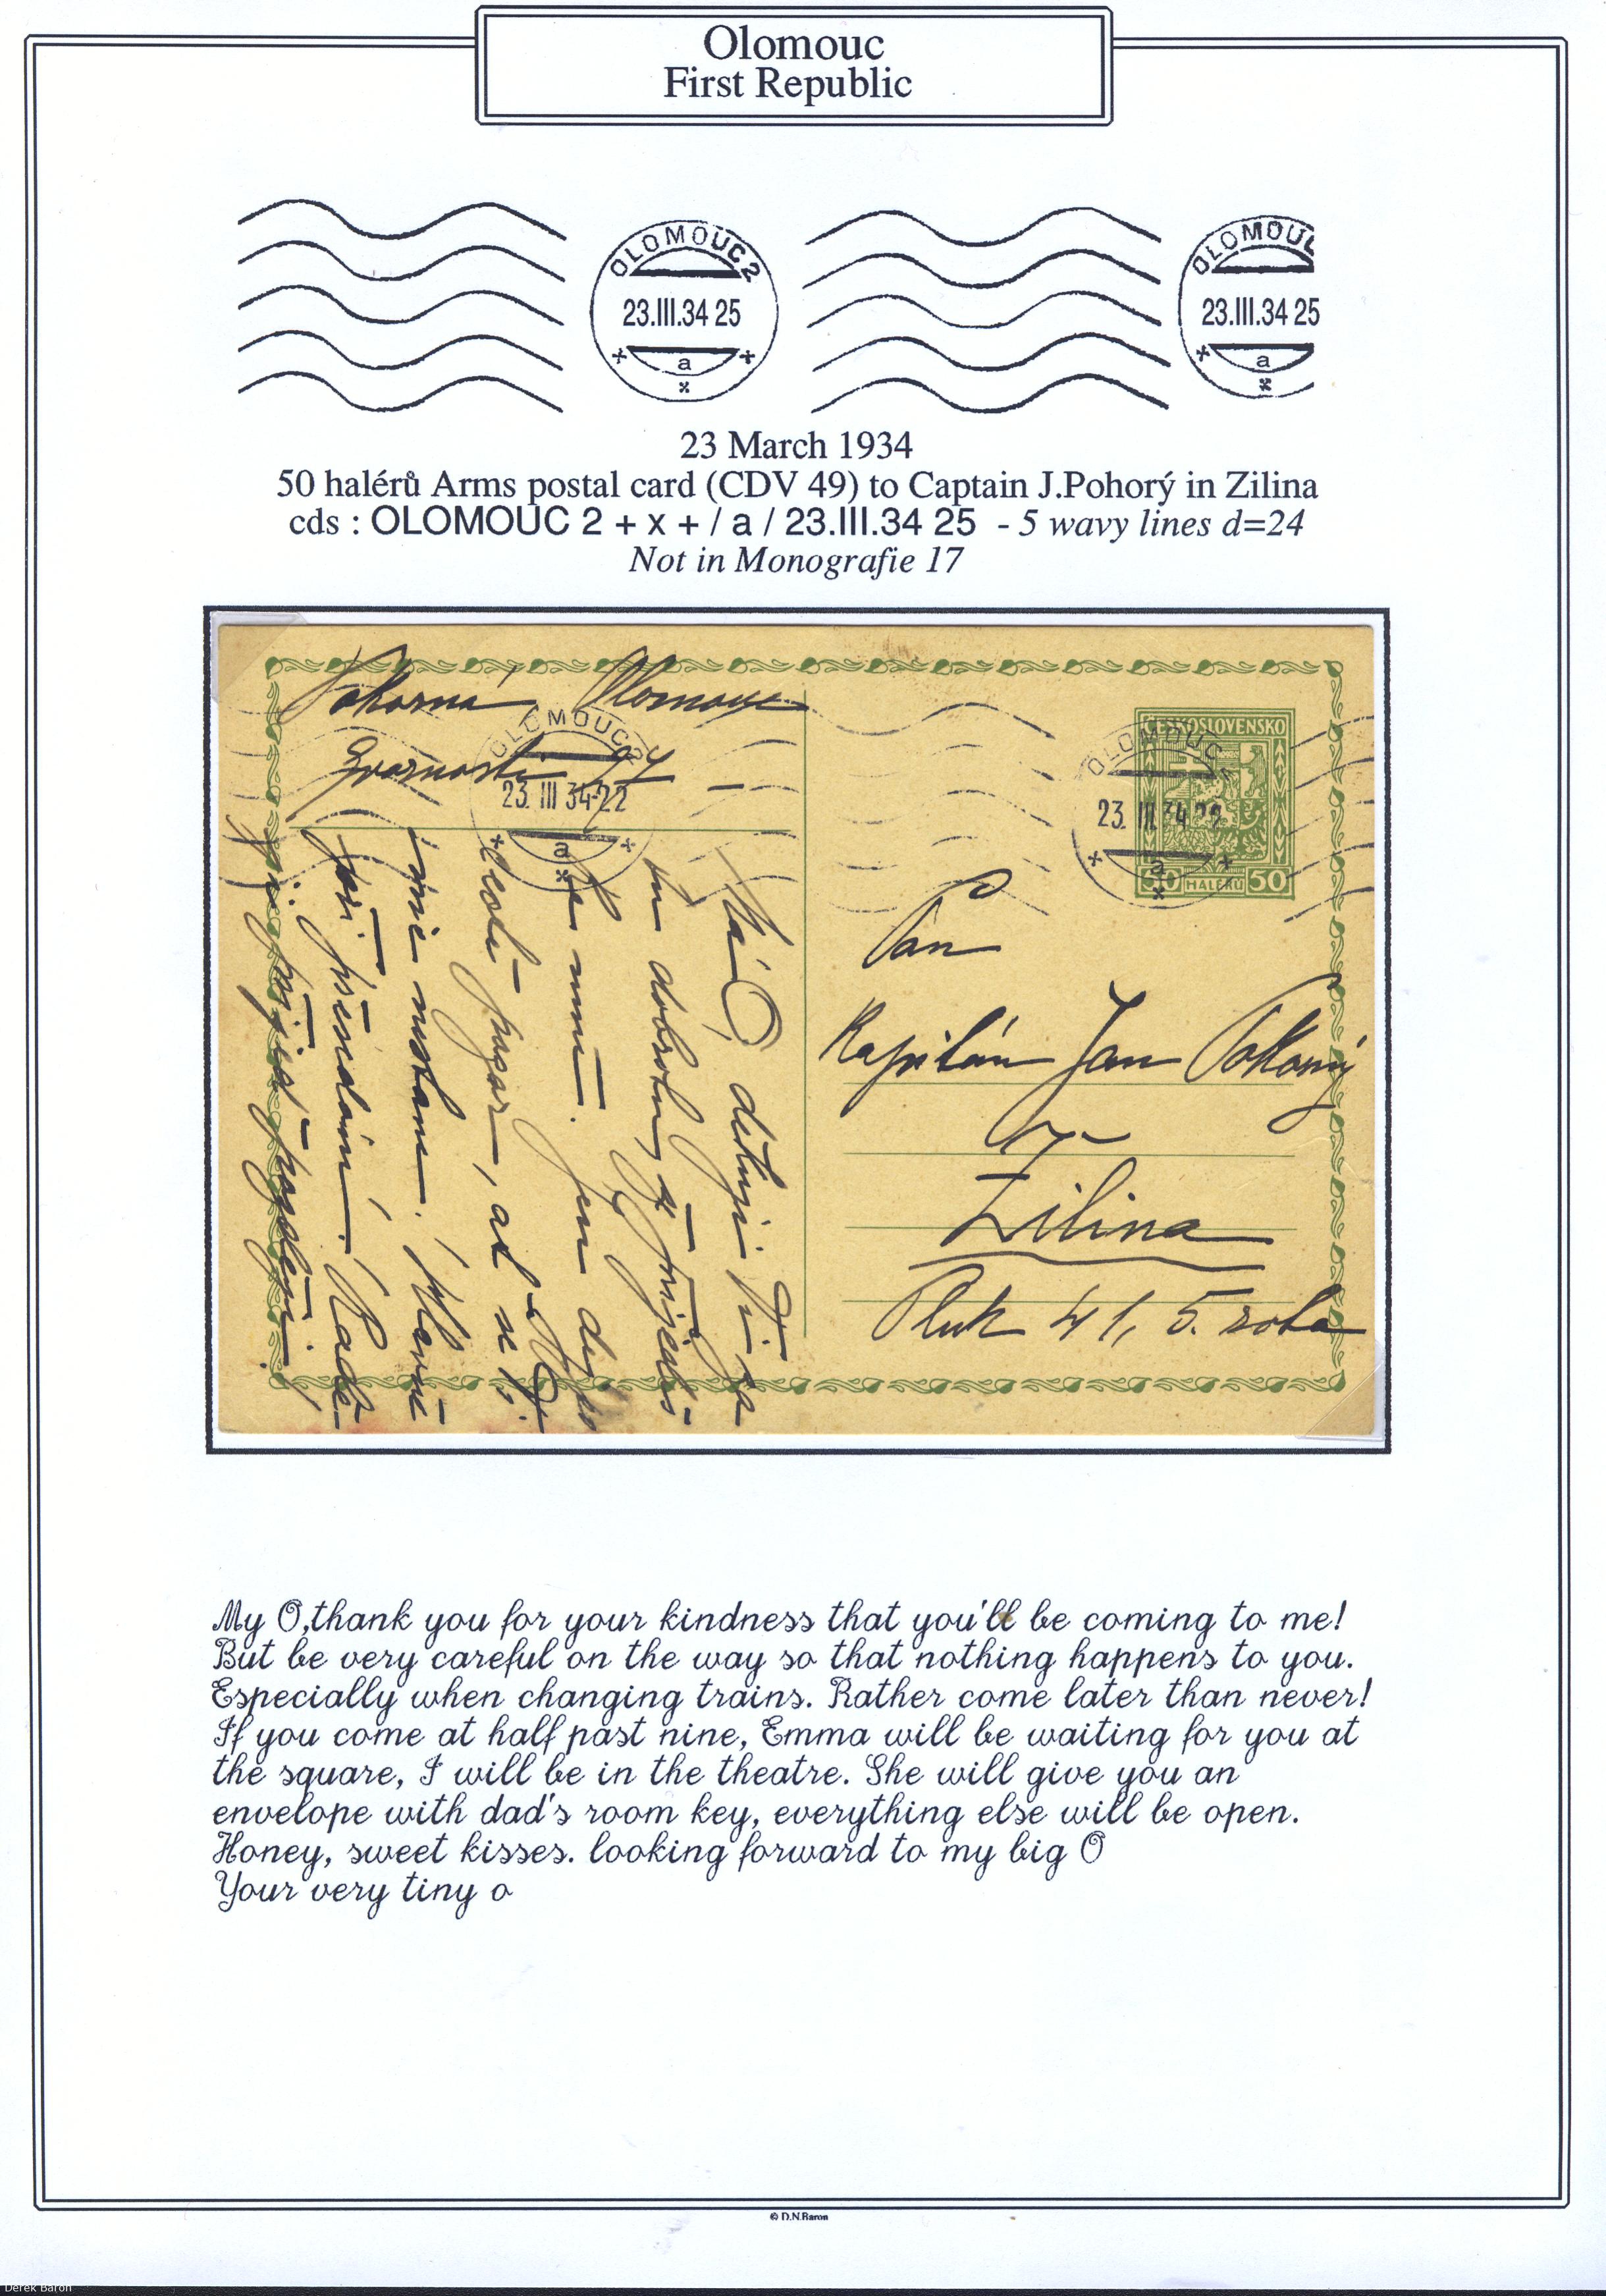 Olomouc
First Republic
OLOMOUC 2
23.III.34 25
a
OLOMOUC
23.III.34 25
a
23 March 1934
50 halérů Arms postal card (CDV 49) to Captain J.Pohorý in Zilina
cds : OLOMOUC 2 + x + / a / 23.III.34 25 - 5 wavy lines d=24
Not in Monografie 17
Pokorná Olomouc
OLOMOUC 2
23. III 34-22
a
ČESKOSLOVENSKO
50 HALÉŘŮ 50
OLOMOUC
23. III 34 22
a
Pan
Kapitán Jan Pokorný
Žilina
Pluk 41, 5. rota
Má O, děkuji Ti za
dobrotu, že přijedeš
ke mně. Jen dej
pozor, ať se Ti
nic nestane. Hlavně
při přesedání. Radě-
ji přijeď později
My O,thank you for your kindness that you'll be coming to me!
But be very careful on the way so that nothing happens to you.
Especially when changing trains. Rather come later than never!
If you come at half past nine, Emma will be waiting for you at
the square, I will be in the theatre. She will give you an
envelope with dad's room key, everything else will be open.
Honey, sweet kisses. looking forward to my big O
Your very tiny o
© D.N.Baron
Derek Baron